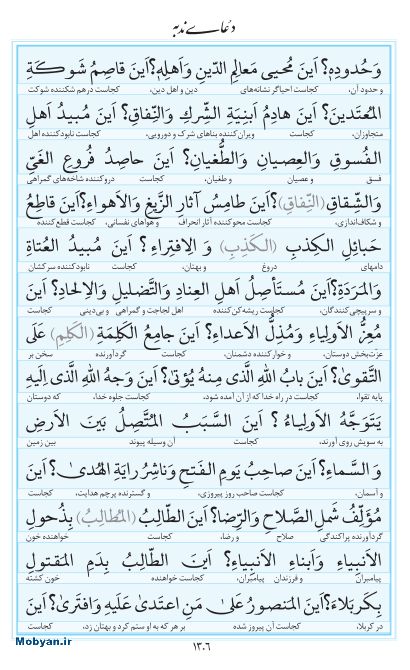 دعاے ندبه
وَحُدُودِهِ؟ اَینَ مُحیی مَعالِمِ الدّینِ وَاَهلِهِ؟ اَینَ قاصِمُ شَوکَةِ
و حدود آن، کجاست احیاگر نشانه‌های دین و اهل دین، کجاست در هم شکننده شوکت
المُعتَدینَ؟ اَینَ هادِمُ اَبنِیَةِ الشِّرکِ وَالنِّفاقِ؟ اَینَ مُبیدُ اَهلِ
متجاوزان، کجاست ویران‌کننده بناهای شرک و دورویی، کجاست نابودکننده اهل
الفُسوقِ وَالعِصیانِ وَالطُّغیانِ؟ اَینَ حاصِدُ فُروعِ الغَیِّ
فسق و عصیان و طغیان، کجاست دروکننده شاخه‌های گمراهی
وَالشِّقاقِ (النِّفاقِ)؟ اَینَ طامِسُ آثارِ الزَّیغِ وَالاَهواءِ؟ اَینَ قاطِعُ
و شکاف‌اندازی، کجاست محوکننده آثار انحراف و هواهای نفسانی، کجاست قطع‌کننده
حَبائِلِ الکِذبِ (الکَذِبِ) وَ الاِفتِراءِ؟ اَینَ مُبیدُ العُتاةِ
دامهای دروغ و بهتان، کجاست نابودکننده سرکشان
وَالمَرَدَةِ؟ اَینَ مُستَأصِلُ اَهلِ العِنادِ وَالتَّضلیلِ وَالاِلحادِ؟ اَینَ
و سرپیچی‌کنندگان، کجاست ریشه‌کن‌کننده اهل لجاجت و گمراهی و بی‌دینی کجاست
مُعِزُّ الاَولِیاءِ وَمُذِلُّ الاَعداءِ؟ اَینَ جامِعُ الکَلِمَةِ (الکَلِمِ) عَلَی
عزت‌بخش دوستان، و خوارکننده دشمنان، کجاست گردآورنده سخن بر
التَّقویٰ؟ اَینَ بابُ اللهِ الَّذی مِنهُ یُؤتیٰ؟ اَینَ وَجهُ اللهِ الَّذی اِلَیهِ
پایه تقوا، کجاست در راه خدا که از آن آمده شود، کجاست جلوه خدا، که دوستان
یَتَوَجَّهُ الاَولِیاءُ؟ اَینَ السَّبَبُ المُتَّصِلُ بَینَ الاَرضِ
به سویش روی آورند، کجاست آن وسیله پیوند بین زمین
وَ السَّماءِ؟ اَینَ صاحِبُ یَومِ الفَتحِ وَناشِرُ رایَةِ الهُدیٰ؟ اَینَ
و آسمان، کجاست صاحب روز پیروزی، و گسترنده پرچم هدایت، کجاست
مُؤَلِّفُ شَملِ الصَّلاحِ وَالرِّضا؟ اَینَ الطّالِبُ (المُطالِبُ) بِذُحولِ
گردآورنده پراکندگی صلاح و رضا، کجاست خواهنده خون
الاَنبِیاءِ وَاَبناءِ الاَنبِیاءِ؟ اَینَ الطّالِبُ بِدَمِ المَقتولِ
پیامبران و فرزندان پیامبران، کجاست خواهنده خون کشته
بِکَربَلاءَ؟ اَینَ المَنصورُ عَلیٰ مَنِ اعتَدیٰ عَلَیهِ وَافتَریٰ؟ اَینَ
در کربلا، کجاست آن پیروز شده بر هر که به او ستم کرد و بهتان زد، کجاست
۱۳۰۶
Mobyan.ir